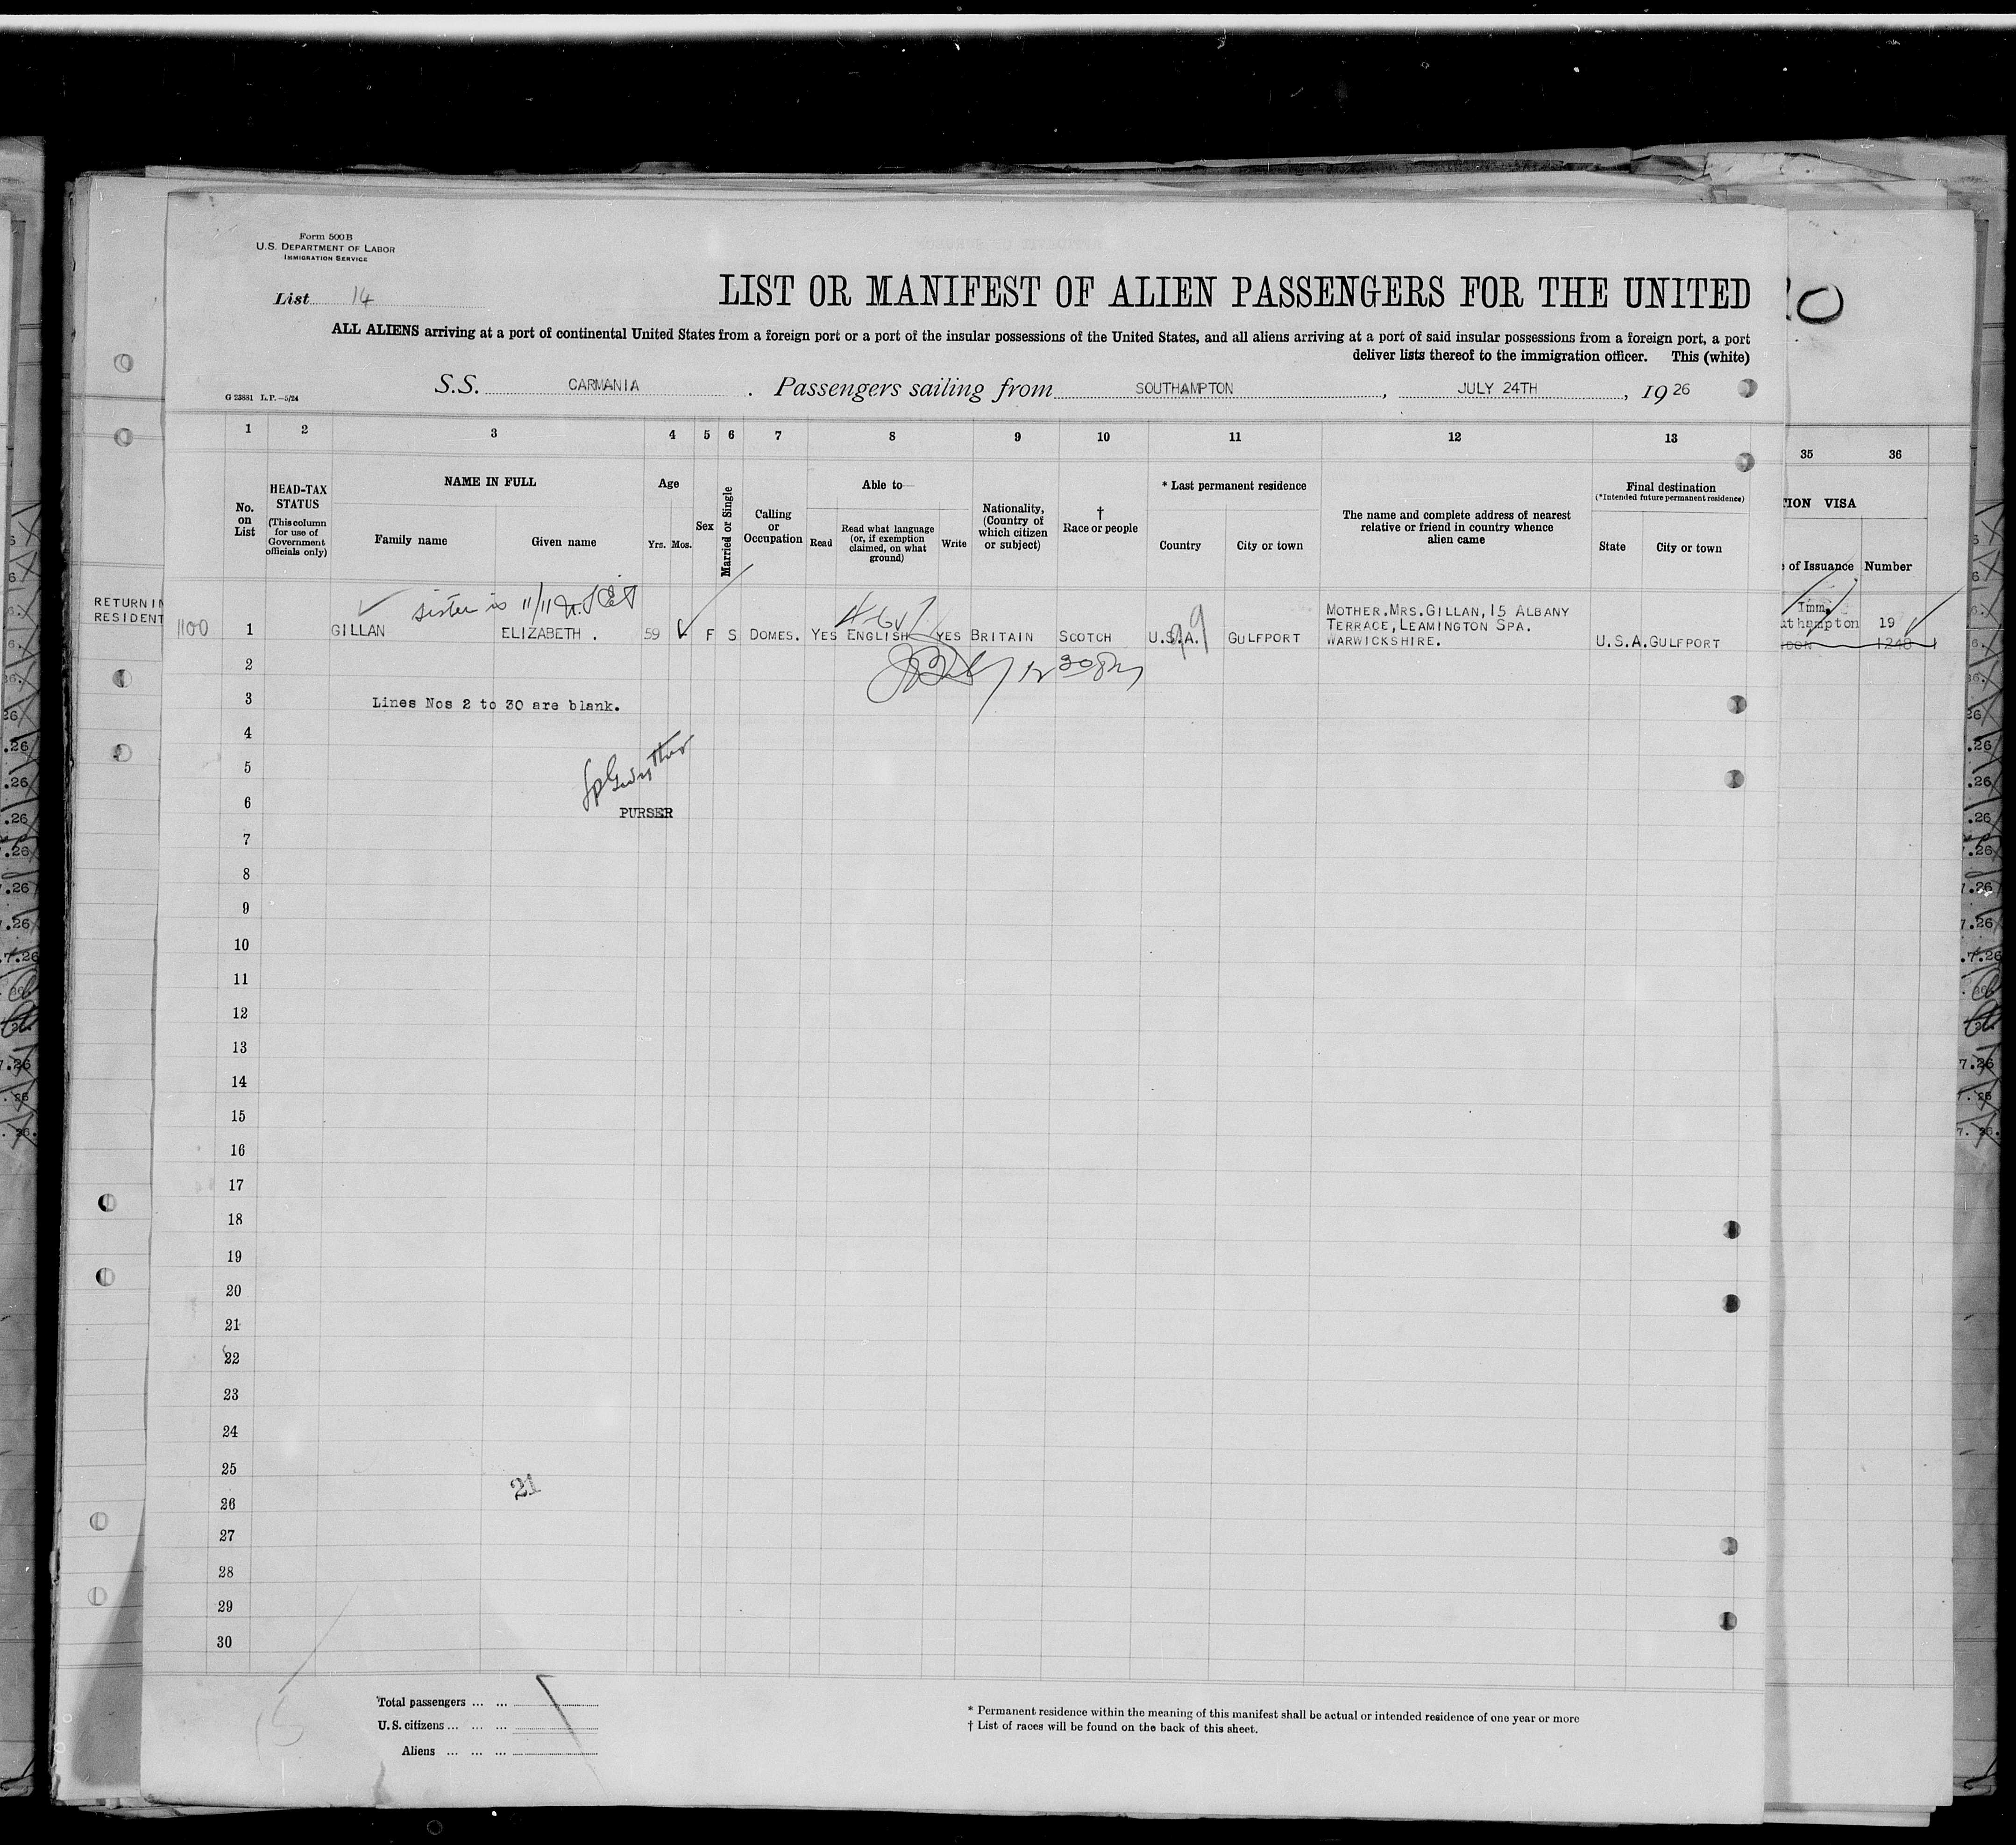 Form 500B
U.S. DEPARTMENT OF LABOR
IMMIGRATION SERVICE
List 14
LIST OR MANIFEST OF ALIEN PASSENGERS FOR THE UNITED
ALL ALIENS arriving at a port of continental United States from a foreign port or a port of the insular possessions of the United States, and all aliens arriving at a port of said insular possessions from a foreign port, a port
deliver lists thereof to the immigration officer. This (white)
G 23881 L.P.—5/24
S.S. CARMANIA . Passengers sailing from SOUTHAMPTON , JULY 24TH , 19 26
1 2 3 4 5 6 7 8 9 10 11 12 13
35 36
No. on List
HEAD-TAX STATUS
(This column for use of Government officials only)
NAME IN FULL
Family name
Given name
Age
Yrs. Mos.
Sex
Married or Single
Calling or Occupation
Able to—
Read
Read what language (or, if exemption claimed, on what ground)
Write
Nationality, (Country of which citizen or subject)
†
Race or people
* Last permanent residence
Country
City or town
The name and complete address of nearest relative or friend in country whence alien came
Final destination
(*Intended future permanent residence)
State
City or town
VISA
of Issuance
Number
RESIDENT
sister is 11/11
1100 1 GILLAN ELIZABETH . 59 F S DOMES. YES ENGLISH YES BRITAIN SCOTCH U.S.A. GULFPORT
MOTHER.MRS.GILLAN, 15 ALBANY
TERRACE, LEAMINGTON SPA.
WARWICKSHIRE.
U.S.A. GULFPORT
Imm.
19
1248
2
3 Lines Nos 2 to 30 are blank.
4
5
6 PURSER
7
8
9
10
11
12
13
14
15
16
17
18
19
20
21
22
23
24
25
21
26
27
28
29
30
Total passengers ... ...
U.S. citizens ... ... ...
Aliens ... ... ...
* Permanent residence within the meaning of this manifest shall be actual or intended residence of one year or more
† List of races will be found on the back of this sheet.